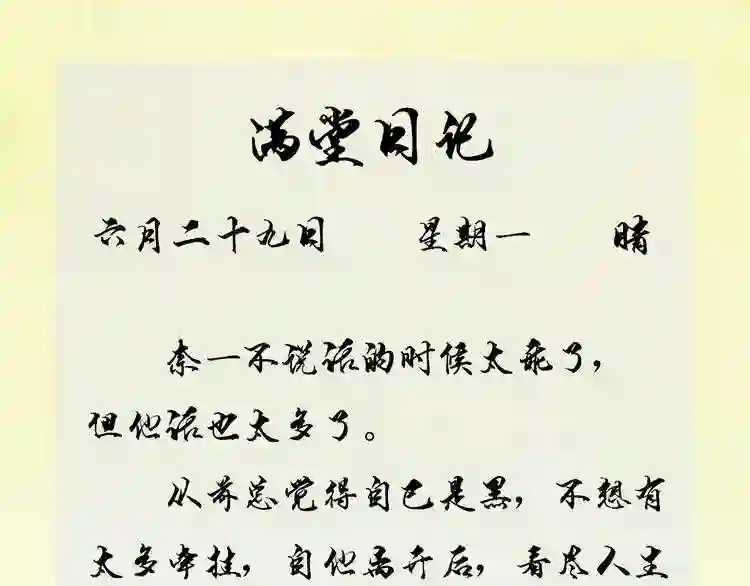 满堂日记
六月二十九日 星期一 晴
奈一不说话的时候太乖了，
但他话也太多了。
从荞总觉得自己是黑，不想有
太多牵挂，自他离开后，看尽人生